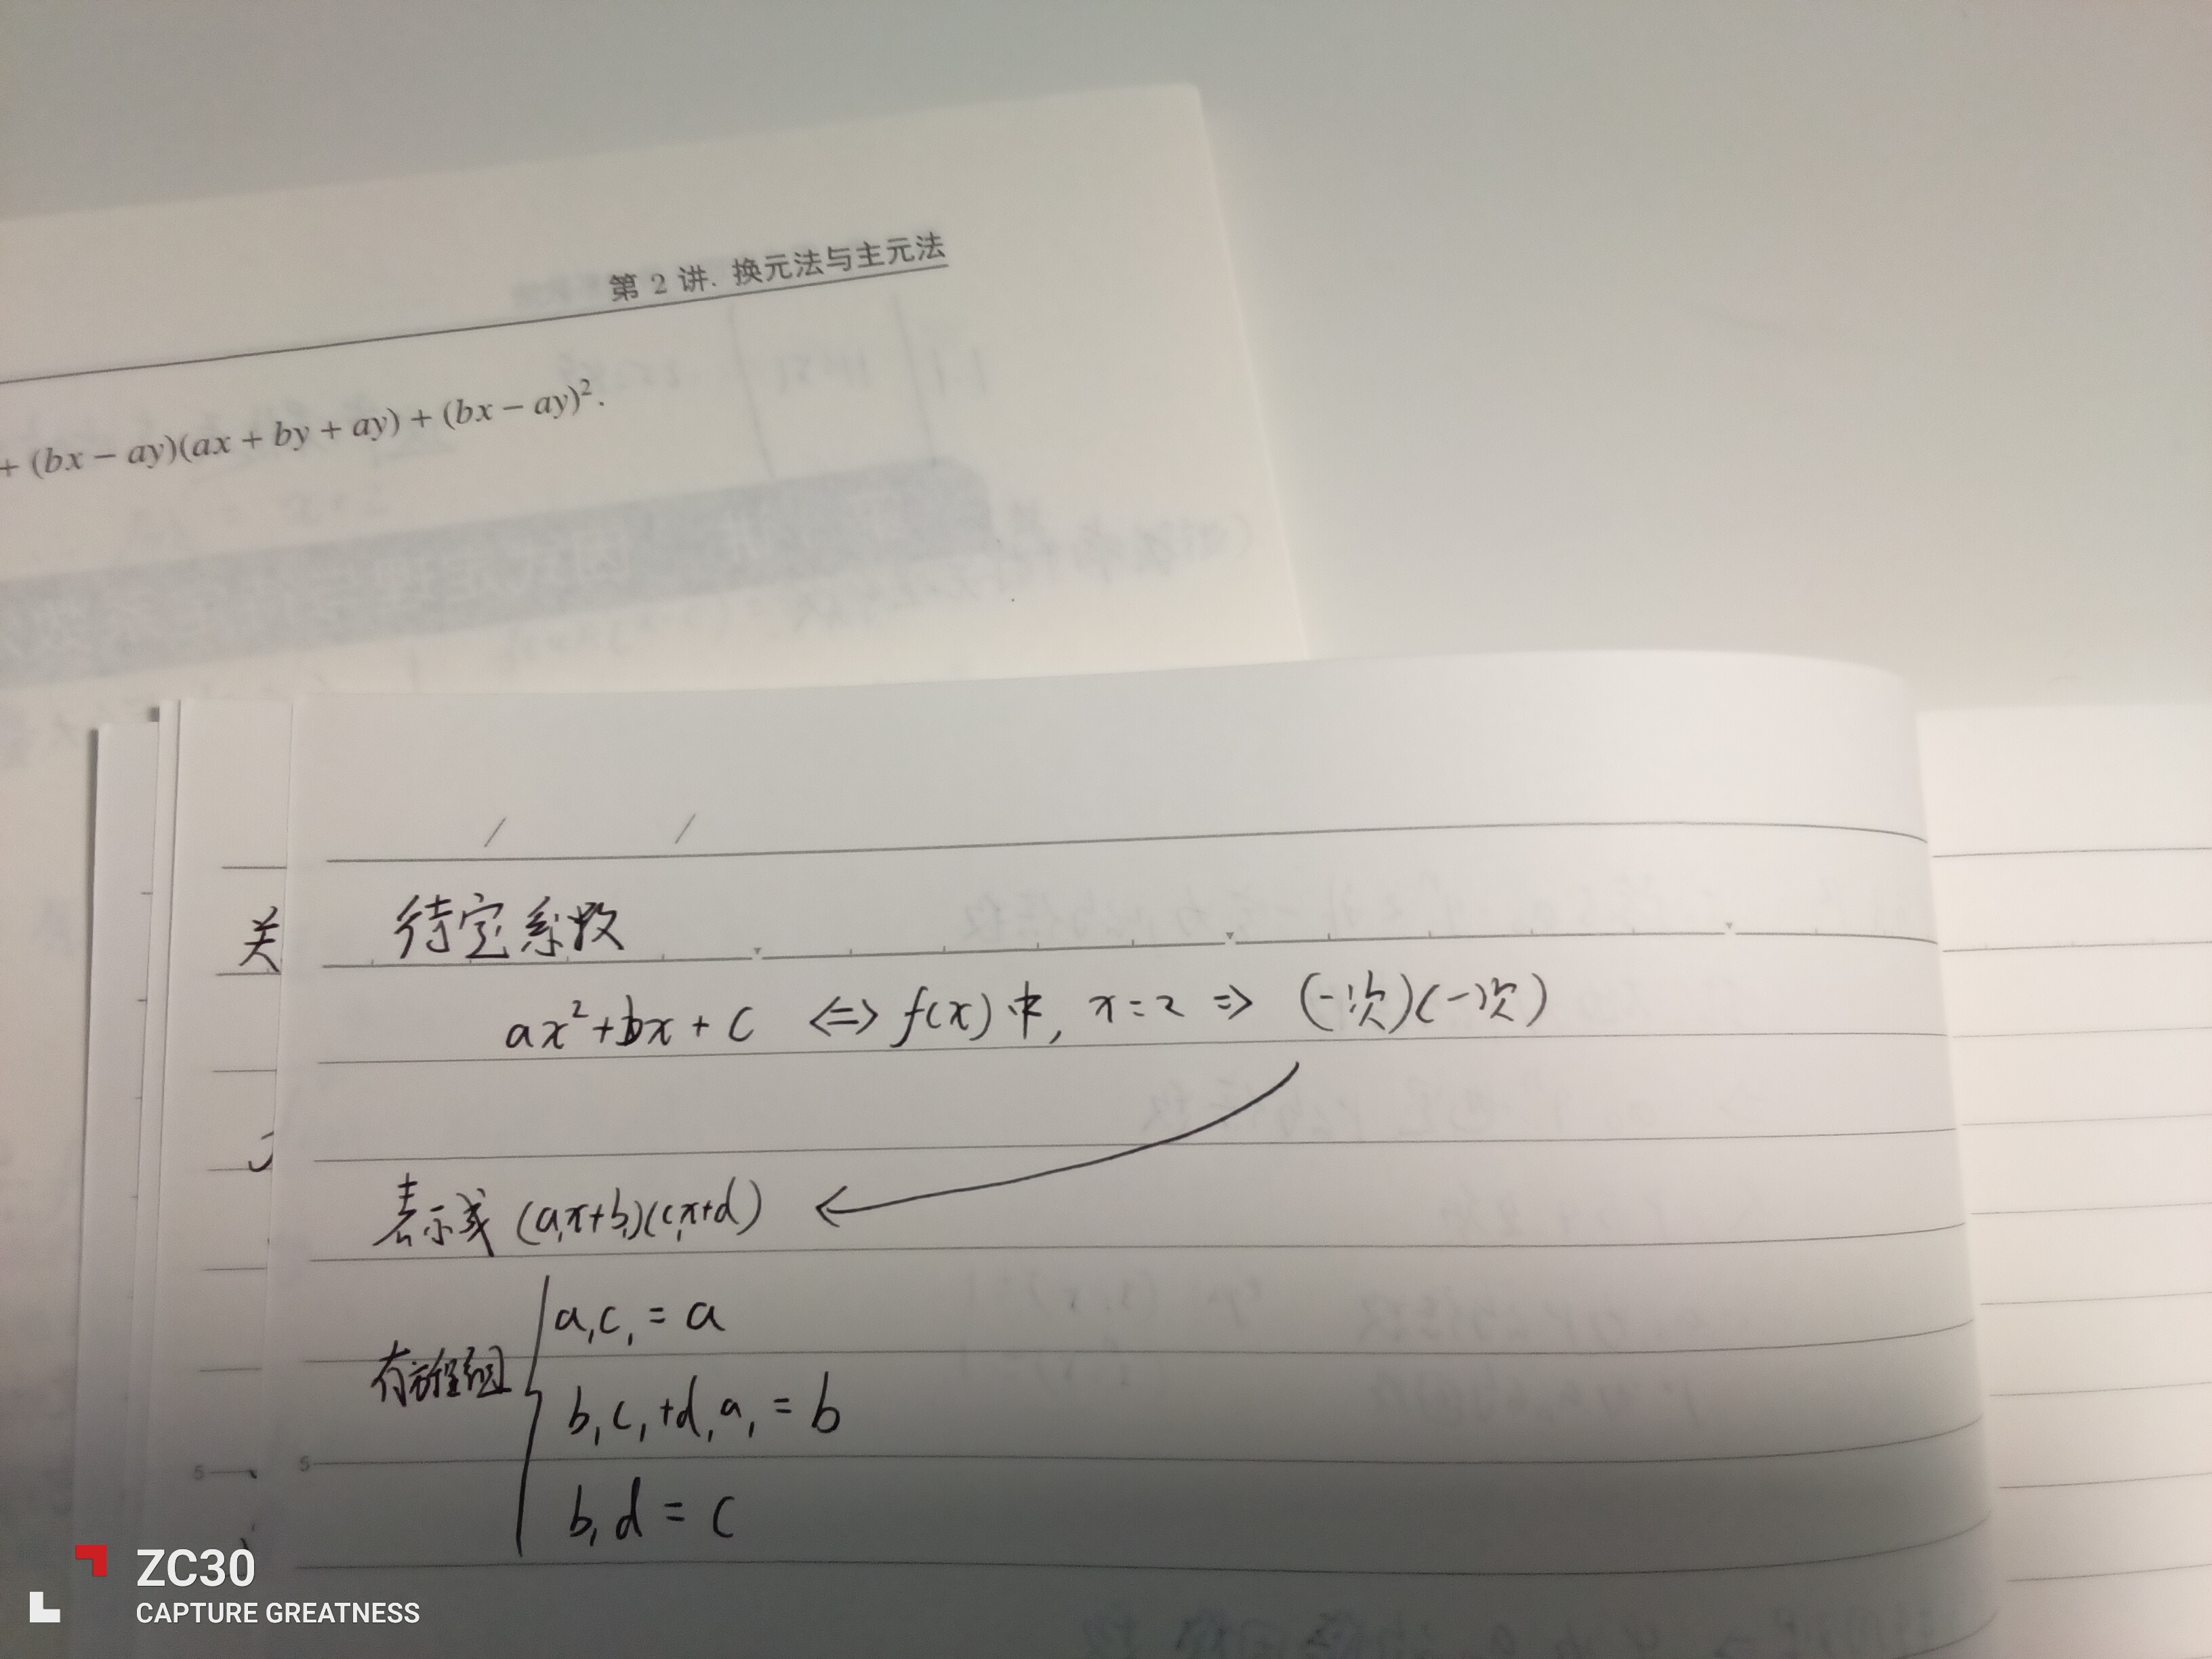 第 2 讲. 换元法与主元法
+ (bx − ay)(ax + by + ay) + (bx − ay)².
关
待定系数
ax²+bx+c <=> f(x)中, x=2 => (一次)(一次)
表示成 (a₁x+b₁)(c₁x+d)
有方程组
a₁c₁ = a
b₁c₁+d₁a₁ = b
b₁d = c
5
5
ZC30
CAPTURE GREATNESS